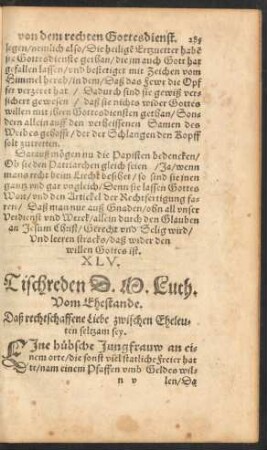 von dem rechten Gottesdienst. 289
legen/nemlich also/Die heilige Ertzuetter habē
jre Gottesdienste gethan/die jm auch Gott hat
gefallen lassen/vnd bestetiget mit Zeichen vom
Himmel herab/in dem/Daß das Fewr die Opf
fer verzeret hat / Dadurch sind sie gewiß ver-
sichert gewesen / daß sie nichts wider Gottes
willen mit jhren Gottesdiensten gethan/Son
dern allein auff den verheissenen Samen des
Weibes gehofft/der der Schlangen den Kopff
solt zutretten.
Darauß mögen nu die Papisten bedencken/
Ob sie den Patriarchen gleich seien / Ja/wenn
mans recht beim Liecht besihet/so sind sie jnen
gantz vnd gar vngleich/Denn sie lassen Gottes
Wort/vnd den Artickel der Rechtfertigung fa-
ren/ Daß man nur auß Gnaden/ohn all vnser
Verdienst vnd Werck/allein durch den Glauben
an Jesum Christ/Gerecht vnd Selig wird/
Vnd leeren stracks/daß wider den
willen Gottes ist.
XLV.
Tischreden D. M. Luth.
Vom Ehestande.
Daß rechtschaffene Liebe zwischen Eheleu-
ten seltzam sey.
EJne hübsche Jungfrauw an ei-
nem orte/die sonst viel statliche Freier hat
te/nam einem Pfaffen vmb Geldes wil-
n v len/Da